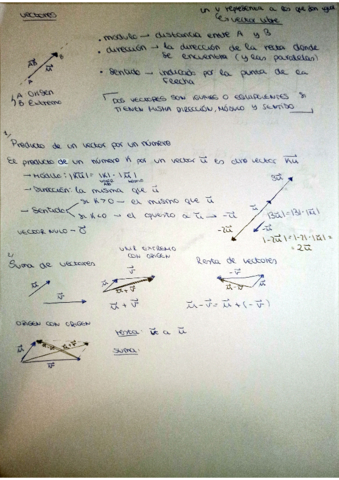 VECTORES
un v representa a los que son iguales
es vector libre
• módulo → distancia entre A y B
• dirección → la dirección de la recta donde se encuentra (y las paralelas)
• sentido → indicado por la punta de la flecha
A ORIGEN
B EXTREMO
DOS VECTORES SON IGUALES O EQUIVALENTES SI
TIENEN MISMA DIRECCIÓN, MÓDULO Y SENTIDO
Producto de un vector por un número
El producto de un número K por un vector u es otro vector Ku
→ Módulo: |Ku| = |K| · |u|
→ Dirección: la misma que u
→ Sentido
si K>0 → el mismo que u
si K<0 → el opuesto a u → -u
VECTOR NULO - 0
3u
u
-2u
|3u| = |3| · |u|
|-2u| = |-2| · |u| =
2u
UNIR EXTREMO
CON ORIGEN
Suma de vectores
Resta de vectores
u
v
u + v
u - v = u + (-v)
ORIGEN CON ORIGEN
resta: v a u
suma: